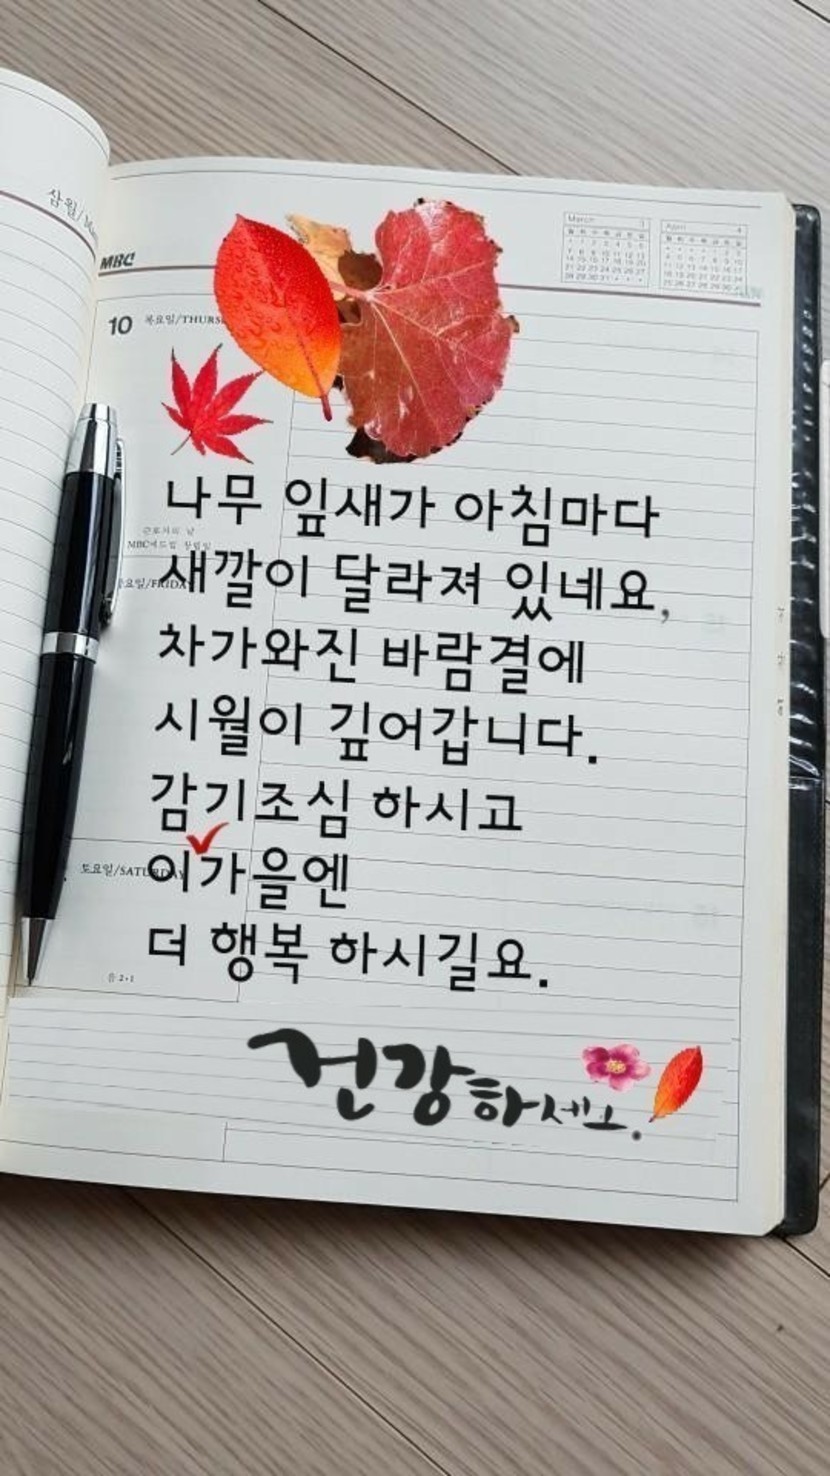 삼월/Ma
MBC
March 3
April 4
10 목요일/THURS
나무 잎새가 아침마다
근로자의 날
MBC애드컴 창립일
새깔이 달라져 있네요,
금요일/FRIDAY
차가와진 바람결에
시월이 깊어갑니다.
감기조심 하시고
이✓가을엔
토요일/SATURDAY
더 행복 하시길요.
음 2·1
건강하세요.